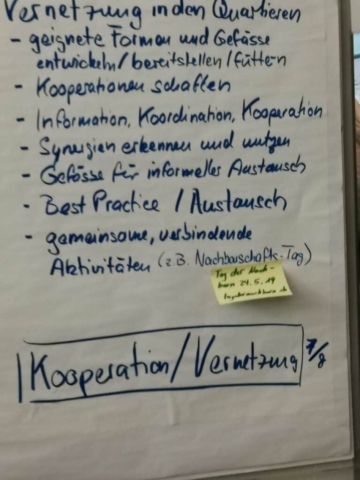 Vernetzung in den Quartieren
- geeignete Formen und Gefässe
entwickeln/bereitstellen/füttern
- Kooperationen schaffen
- Information, Koordination, Kooperation
- Synergien erkennen und nutzen
- Gefässe für informelles Austausch
- Best Practice / Austausch
- gemeinsame, verbindende
Aktivitäten (z.B. Nachbarschafts-Tag)
Tag der Nach-
barn 24.5.19
Kooperation/Vernetzung 7/8